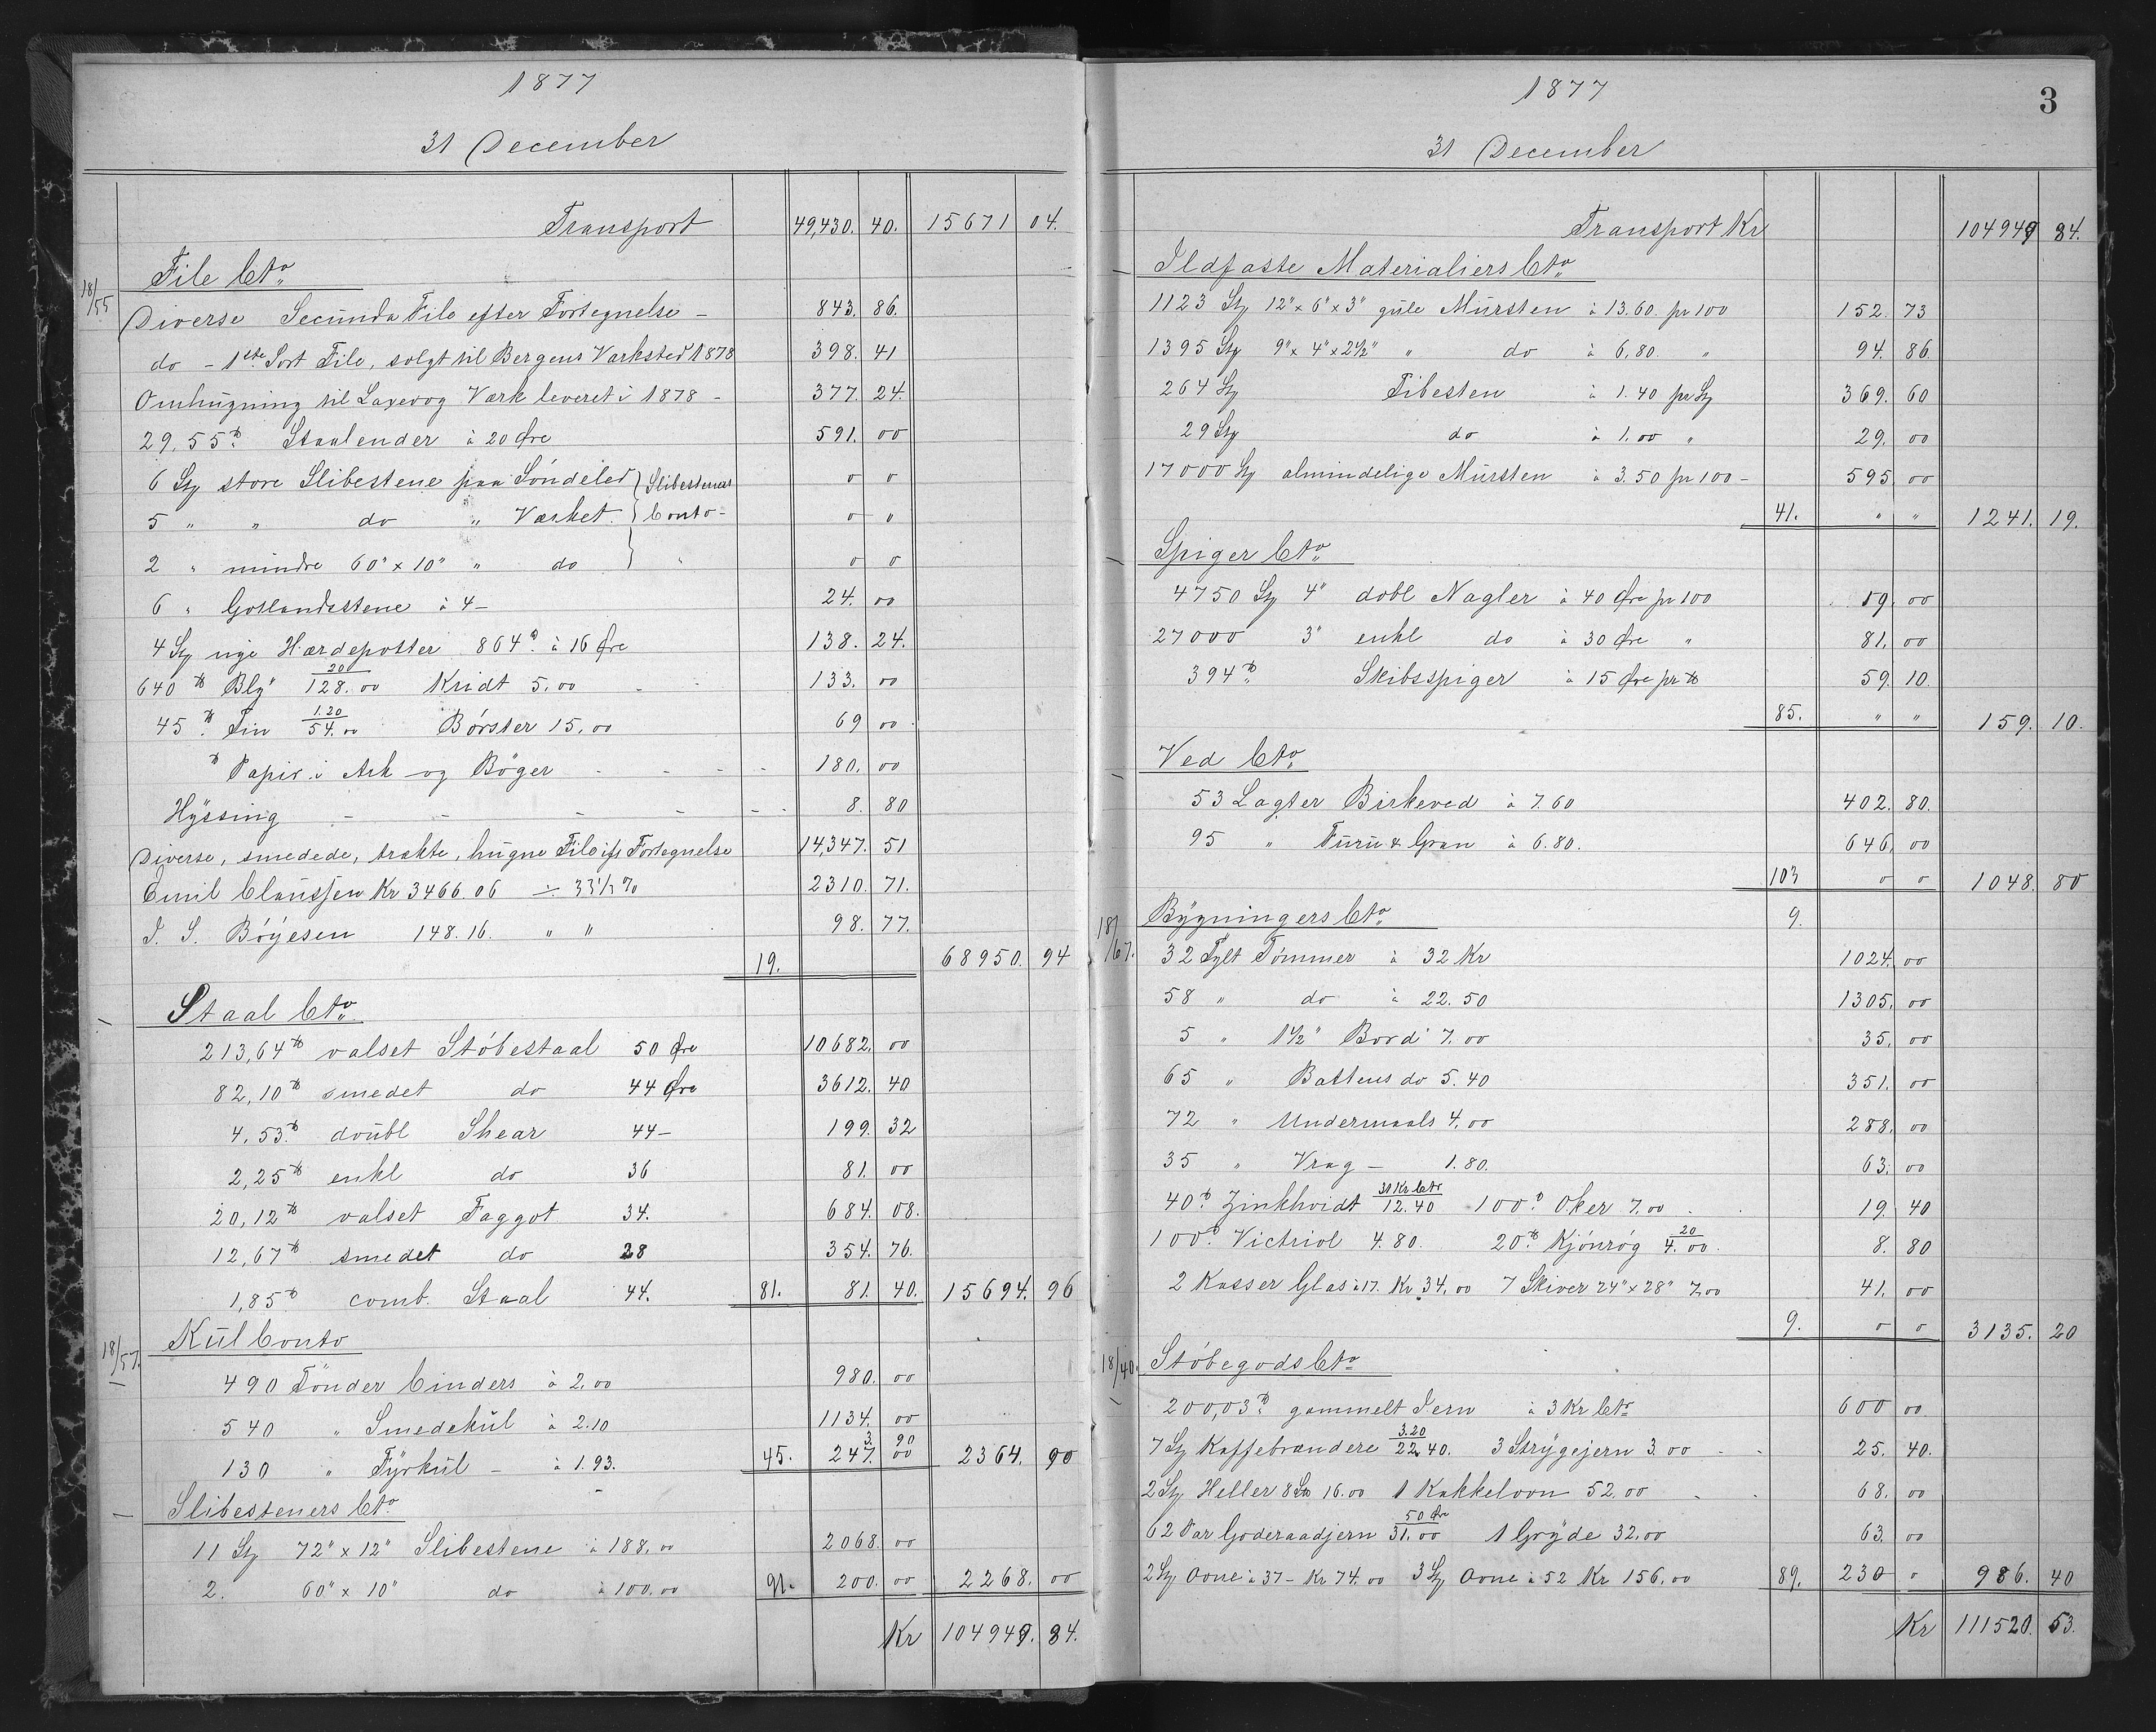 1877
31 December
Transport 49,430. 40. 15671 04.
File Cto
18/55
Diverse Secunda File efter Fortegnelse - 843. 86.
do - 1ste Sort File, solgt til Bergens Værksted 1878 398. 41
Omhugning til Laxevog Værk leveret i 1878 - 377. 24.
29,55 ℔ Staalender à 20 Øre 591. 00
6 Stz store Slibestene paa Söndeled } Slibestenes o o
5 " " do " Værket. } Conto - o o
2 " mindre 60" x 10" " do } " o o
6 " Gotlandsstene à 4 - 24. 00
4 Stz nye Hærdepotter 864 ℔ à 16 Øre 138. 24.
640 ℔ Bly 20/128.00 Kridt 5.00 133. 00
45 ℔ Tin 1.20/54.00 Börster 15.00 69 00
℔ Papir i Ark og Böger - - - 180. 00
Hyssing - - - - - 8. 80
Diverse, smedede, trakte, hugne File ifs Fortegnelse 14,347. 51
Emil Claussen Kr 3466.06 ÷ 33 1/3 % 2310. 71.
J. S. Böyesen 148.16. " " 98. 77.
19. 68950. 94
Staal Cto
213,64 ℔ valset Stöbestaal 50 Øre 10682. 00
82,10 ℔ smedet do 44 Øre 3612. 40
4,53 ℔ doubl Shear 44 - 199. 32
2,25 ℔ enkl do 36 81. 00
20,12 ℔ valset Faggot 34. 684. 08.
12,67 ℔ smedet do 28 354. 76.
1,85 ℔ comb. Staal 44. 81. 81. 40. 15694. 96
Kul Conto
18/57.
490 Tönder Cinders à 2.00 980. 00
540 " Smedekul à 2.10 1134. 00
3. 90
130 " Fyrkul - à 1.93. 45. 247. 00 2364. 90
Slibesteners Cto
11 Stz 72" x 12" Slibestene à 188.00 2068. 00
2. 60" x 10" do à 100.00 91. 200. 00 2268. 00
Kr 104949. 84.
1877
3
31 December
Transport Kr 104949 84.
Ildfaste Materialiers Cto
1123 Stz 12" x 6" x 3" gule Mursten à 13.60. pr 100 152. 73
1395 Stz 9" x 4" x 2½" " do à 6,80. " 94. 86.
264 Stz Pibesten à 1.40 pr Stz 369. 60
29 Stz do à 1.00 " 29. 00
17000 Stz almindelige Mursten à 3.50 pr 100 - 595 00
41. " " 1241. 19.
Spiger Cto
4750 Stz 4" dobl Nagler à 40 Øre pr 100 19. 00
27000 3" enkl do à 30 Øre " 81. 00
394 ℔ Skibsspiger à 15 Øre pr ℔ 59. 10.
85. " " 159. 10.
Ved Cto
53 Lagter Birkeved à 7.60 402. 80.
95 " Furu & Gran à 6.80. 646. 00
103 o o 1048. 80
Bygningers Cto 9.
18/67.
32 Tylt Tömmer à 32 Kr 1024. 00
58 " do à 22.50 1305. 00
5 " 1½" Bord 7.00 35. 00
65 " Battens do 5.40 351. 00
72 " Undermaals 4.00 288. 00
35 " Vrag - 1.80. 63. 00
40 ℔ Zinkhvidt 31 Kr Cntr/12.40 100 ℔ Oker 7.00 19. 40
100 ℔ Victriol 4.80. 20 ℔ Kjönrög 20/4.00. 8. 80
2 Kasser Glas à 17. Kr 34.00 7 Skiver 24" x 28" 7.00 41. 00
9. o o 3135. 20
Stöbegods Cto
18/40.
200,03 ℔ gammelt Jern à 3 Kr Cntr 600 00
7 Stz Kaffebrændere 3.20/22.40. 3 Strygejern 3.00 - - 25. 40.
2 Stz Heller 16.00 1 Kakkelovn 52.00 68. 00
62 Par Goderaadjern 50 Øre/31.00 1 Gryde 32.00 63. 00
2 Stz Ovne à 37 - Kr 74.00 3 Stz Ovne à 52 Kr 156.00 89. 230 o 986. 40
Kr 111520. 53.